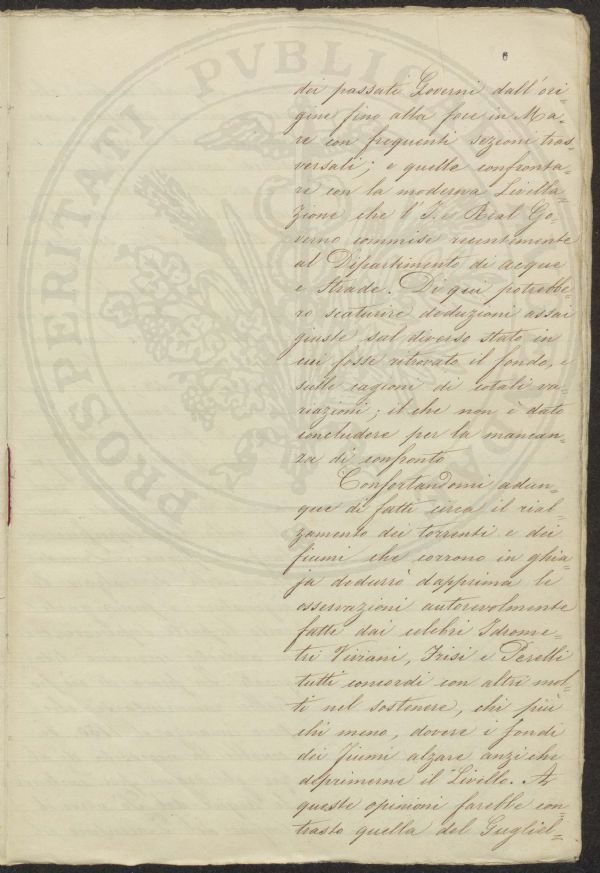 6
dei passati Governi dall'ori-
gine fino alla foce in Ma-
re con frequenti sezioni tras-
versali; e quelle confronta-
re con la moderna Livella-
zione che l'I. e Real Go-
verno commise recentemente
al Dipartimento di acque
e Strade. Di qui potrebbe-
ro scaturire deduzioni assai
giuste sul diverso stato in
cui fosse ritrovato il fondo, e
sulle cagioni di cotali va-
riazioni; il che non è dato
concludere per la mancan-
za di confronto
Confortandomi adun-
que di fatti circa il rial-
zamento dei torrenti e dei
fiumi che corrono in ghia-
ja dedurrò dapprima le
osservazioni autorevolmente
fatte dai celebri Idrome-
tri Viviani, Frisi e Perelli
tutti concordi con altri mol-
ti nel sostenere, chi più
chi meno, dovere i fondi
dei fiumi alzare anzi che
deprimerne il Livello. A
queste opinioni farebbe con-
trasto quella del Gugliel-
PROSPERITATI PVBLICAE